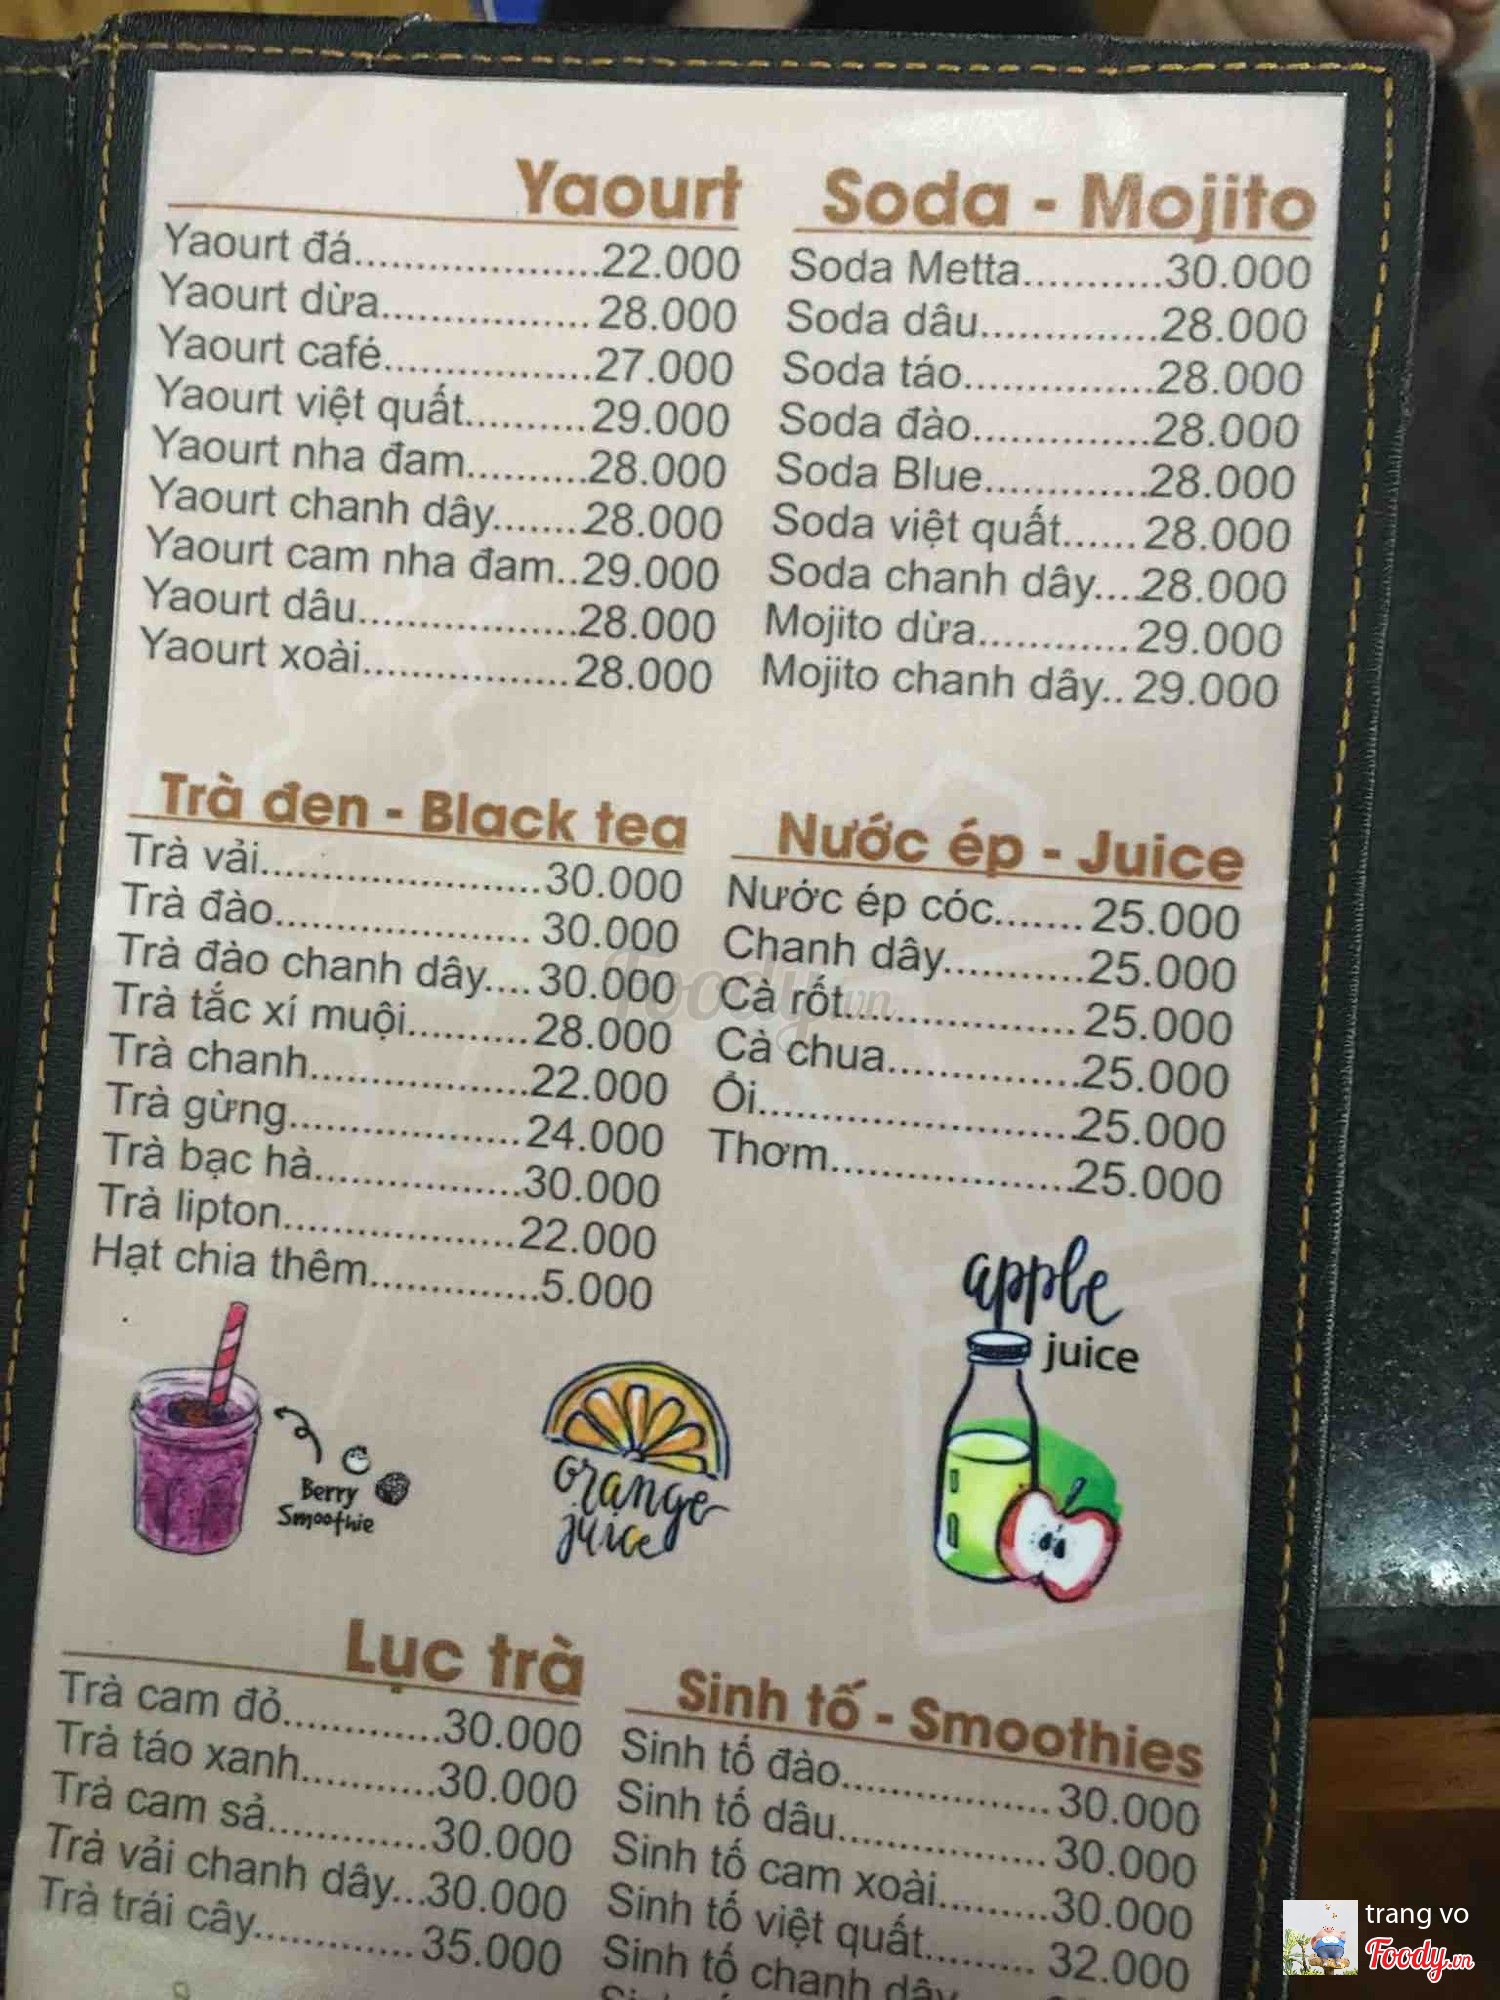 Yaourt
Yaourt đá....................22.000
Yaourt dừa.................28.000
Yaourt café.................27.000
Yaourt việt quất..........29.000
Yaourt nha đam..........28.000
Yaourt chanh dây.......28.000
Yaourt cam nha đam..29.000
Yaourt dâu..................28.000
Yaourt xoài.................28.000
Soda - Mojito
Soda Metta...........30.000
Soda dâu..............28.000
Soda táo...............28.000
Soda đào..............28.000
Soda Blue.............28.000
Soda việt quất......28.000
Soda chanh dây....28.000
Mojito dừa............29.000
Mojito chanh dây..29.000
Trà đen - Black tea
Trà vải.......................30.000
Trà đào.....................30.000
Trà đào chanh dây....30.000
Trà tắc xí muội..........28.000
Trà chanh..................22.000
Trà gừng...................24.000
Trà bạc hà.................30.000
Trà lipton...................22.000
Hạt chia thêm..............5.000
Nước ép - Juice
Nước ép cóc.......25.000
Chanh dây...........25.000
Cà rốt..................25.000
Cà chua...............25.000
Ổi.........................25.000
Thơm...................25.000
apple
juice
Berry
Smoothie
orange
juice
Lục trà
Trà cam đỏ.............30.000
Trà táo xanh...........30.000
Trà cam sả.............30.000
Trà vải chanh dây...30.000
Trà trái cây.............35.000
Sinh tố - Smoothies
Sinh tố đào.................30.000
Sinh tố dâu.................30.000
Sinh tố cam xoài.........30.000
Sinh tố việt quất.........32.000
Sinh tố chanh dây
Foody.vn
trang vo
Foody.vn